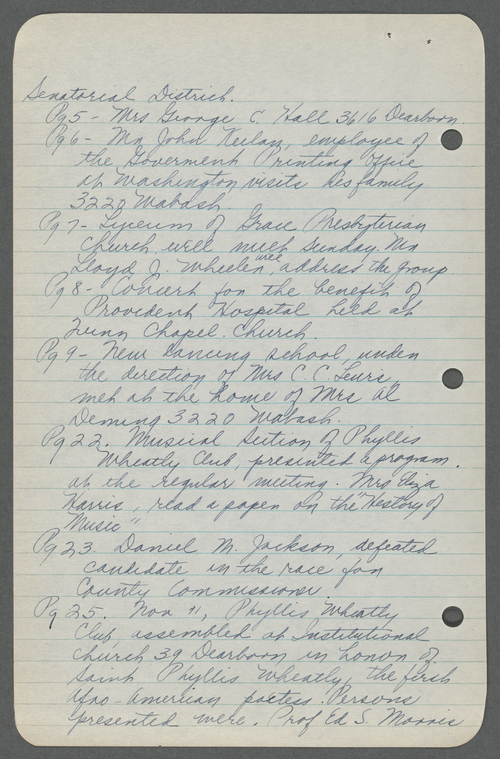 Senatorial District.
Pg 5 - Mrs George C. Hall 3616 Dearborn.
Pg 6 - Mr John Keelan, employee of
the Goverment Printing Office
at Washington visits his family
3220 Wabash.
Pg 7 - Lyceum of Grace Presbyterian
Church, will meet Sunday. Mr
Lloyd J. Wheeler, will address the group
Pg 8 - Concert for the benefit of
Provident Hospital held at
Quinn Chapel Church.
Pg 9 - New dancing school, under
the direction of Mrs C. C. Lewis,
met at the home of Mrs Al
Deming 3220 Wabash.
Pg 22. Musical Section of Phyllis
Wheatly Club, presented a program.
at the regular meeting. Mrs
Harris, read a paper on the "History of
Music"
Pg 23. Daniel M. Jackson, defeated
candidate in the race for
County Commissioner.
Pg 25. Nov 11, Phyllis Wheatly
Club, assembled at Institutional
Church 39 Dearborn in honor of
Saint Phyllis Wheatly, the first
Afro-Amerian poetess. Persons
presented were. Prof Ed S. Morris